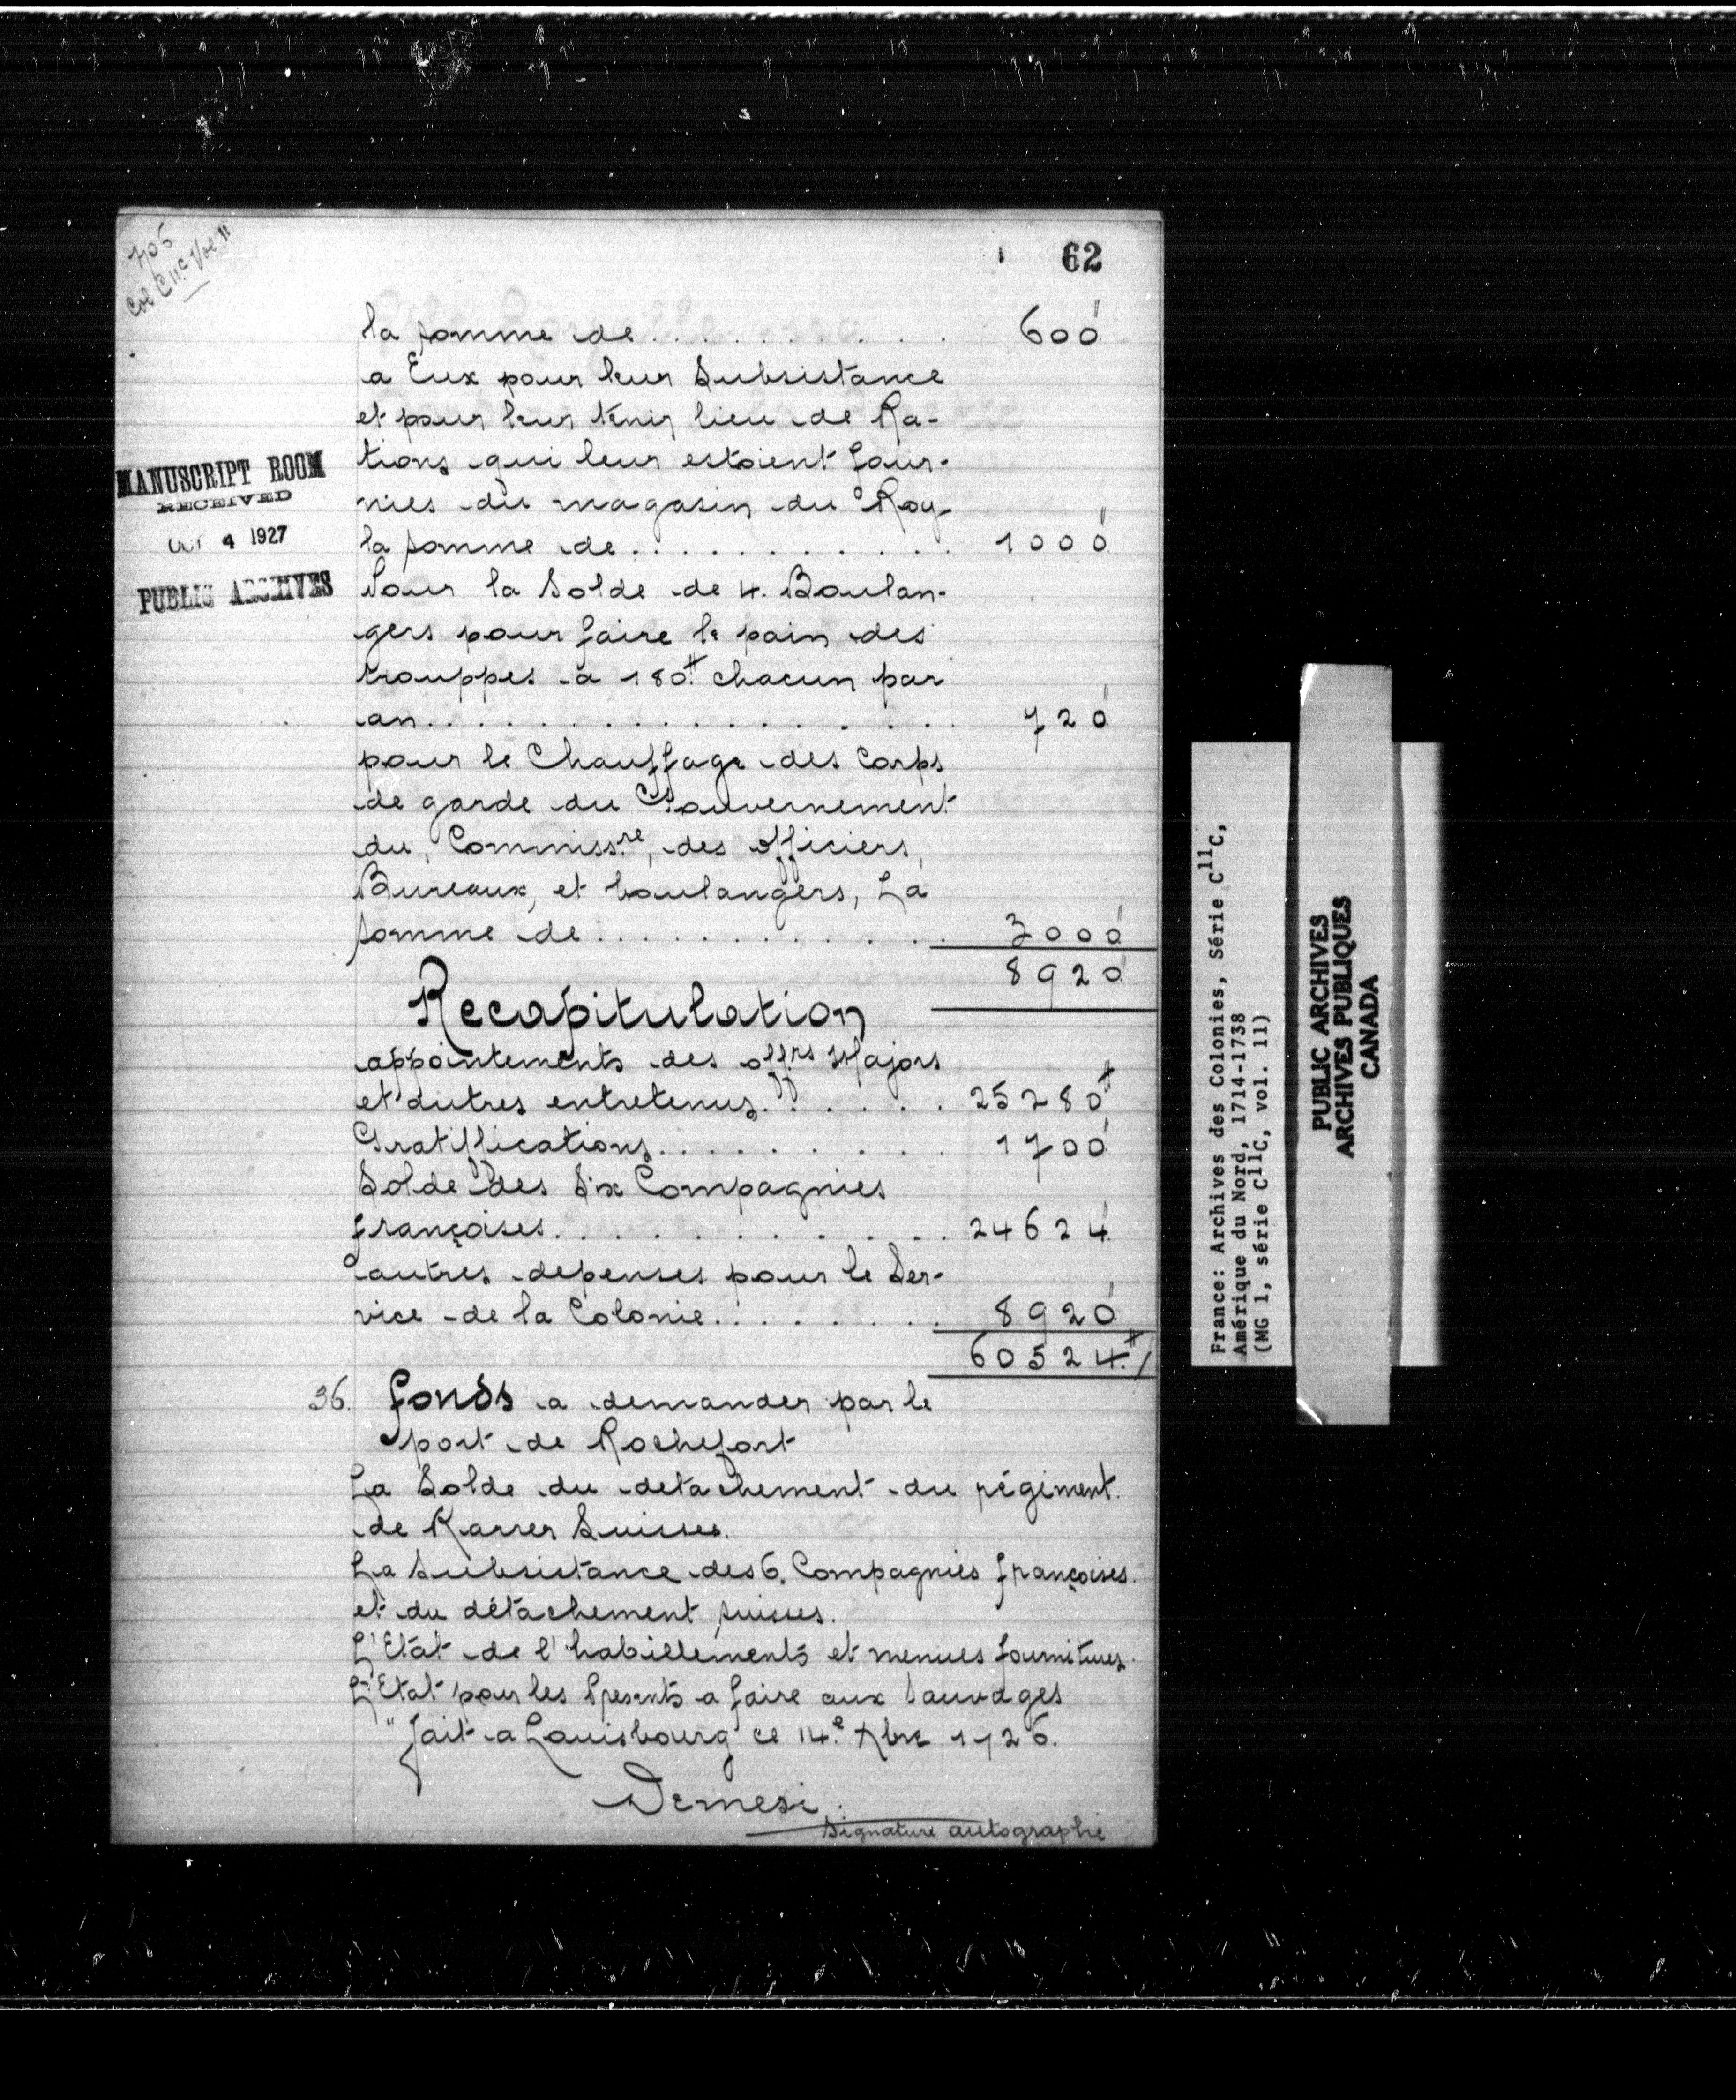 706
Col C11c Vol 11
62
la somme de .......... 600
a Eux pour leur Subsistance
et pour leur tenir lieu de Ra-
tions qui leur estoient four-
nies du magasin du Roy
la somme de ............ 1000
Pour la Solde de 4. Boulan-
gers pour faire le pain des
trouppes a 180.# chacun par
an .................. 720
pour le Chauffage des Corps
de garde du Gouvernement
du, Commissre, des officiers,
Bureaux, et boulangers, La
somme de ............. 3000
8920
Recapitulation
appointements des offrs Majors
et autres entretenus ....... 25280#
Gratiffications .......... 1700
Solde des Six Compagnies
françoises .............. 24624
autres depenses pour le Ser-
vice de la Colonie ......... 8920
60524.#/
36. fonds a demander par le
port de Rochefort
La Solde du detachement du régiment
de Karrer Suisses.
La Subsistance des 6. Compagnies françoises
et du détachement suisses.
L'Etat de l'habillements et menues fournitures.
L'Etat pour les Presents a faire aux Sauvages
"fait a Louisbourg ce 14.e Xbre 1726.
Demesi
Signature autographe
MANUSCRIPT ROOM
RECEIVED
OCT 4 1927
PUBLIC ARCHIVES
France: Archives des Colonies, Série C11C,
Amérique du Nord, 1714-1738
(MG 1, série C11C, vol. 11)
PUBLIC ARCHIVES
ARCHIVES PUBLIQUES
CANADA